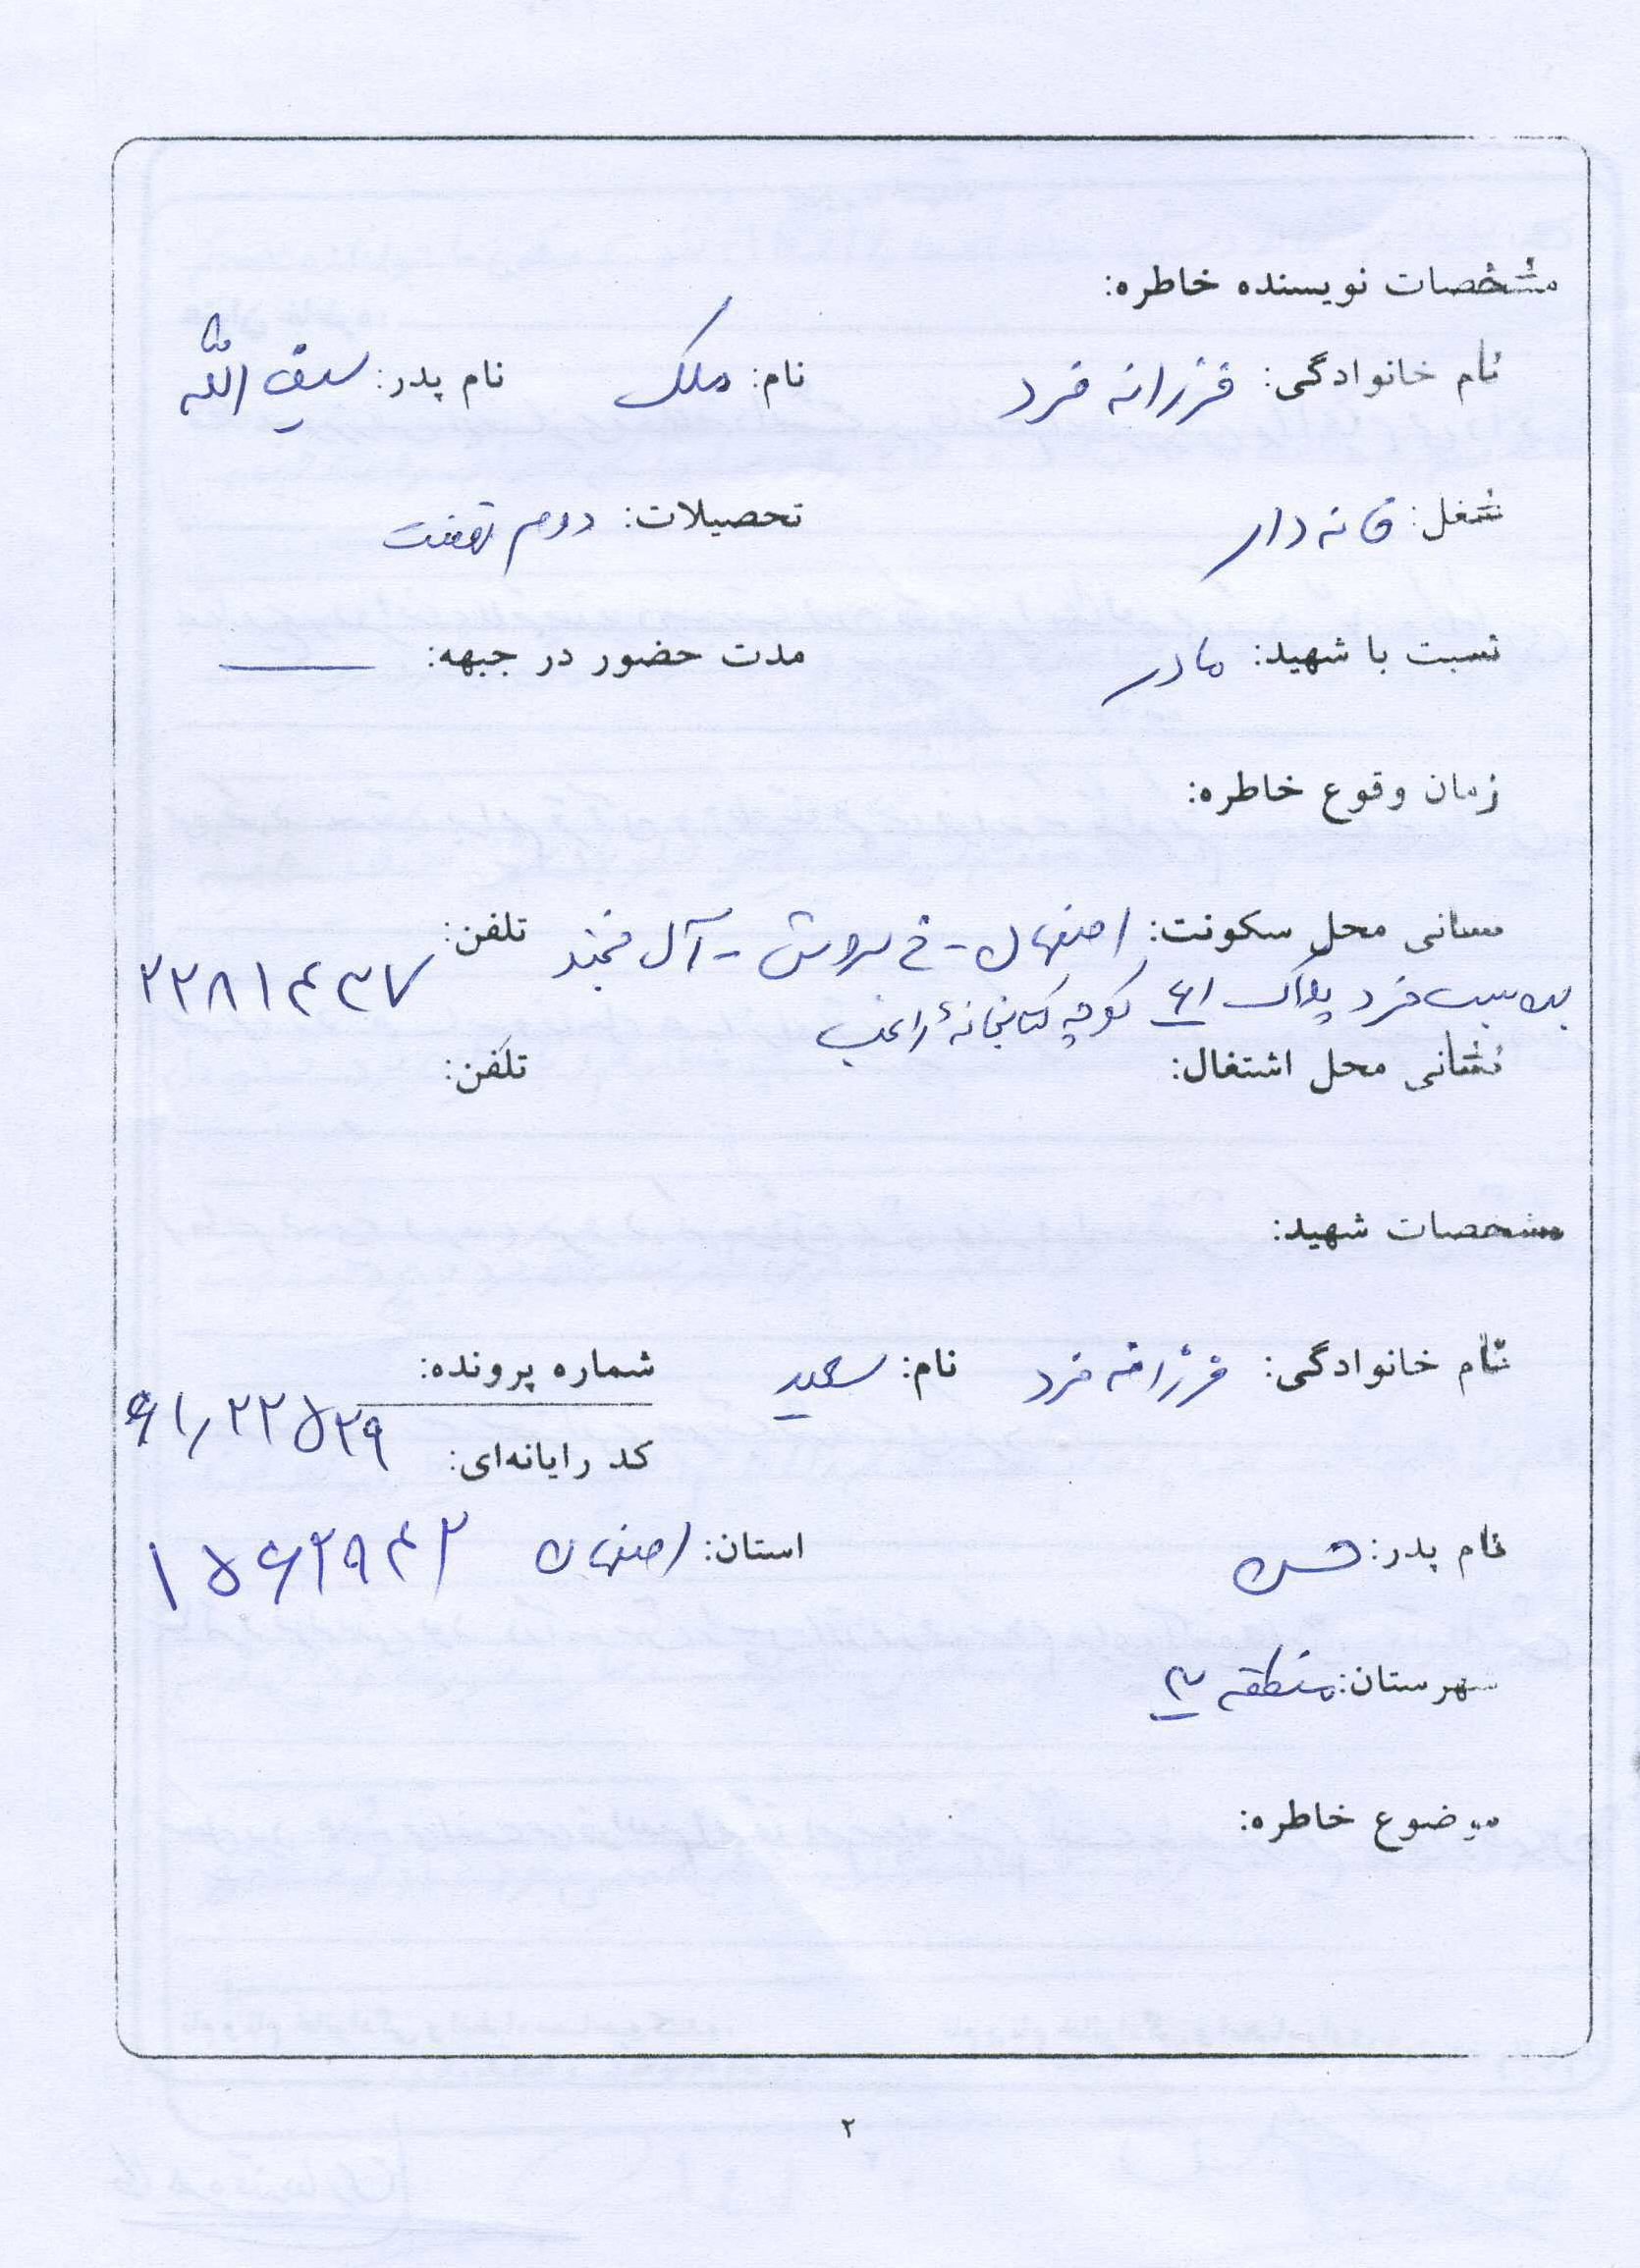 مشخصات نویسنده خاطره:
نام خانوادگی: فرزانه فرد نام: ملک نام پدر: سیف الله
شغل: خانه دار تحصیلات: دوم نهضت
نسبت با شهید: مادر مدت حضور در جبهه: ——
زمان وقوع خاطره:
نشانی محل سکونت: اصفهان - خ سروش - آل محمد تلفن:
بن بست فرد پلاک ۶۱ کوچه کتابخانهٔ راغب ۲۲۸۱۴۳۷
نشانی محل اشتغال: تلفن:
مشخصات شهید:
نام خانوادگی: فرزانه فرد نام: سعید شماره پرونده:
۶۱٫۲۲۵۲۹
کد رایانه‌ای:
نام پدر: حسن استان: اصفهان ۱۵۶۲۹۴۲
شهرستان: منطقه ۳
موضوع خاطره:
۲